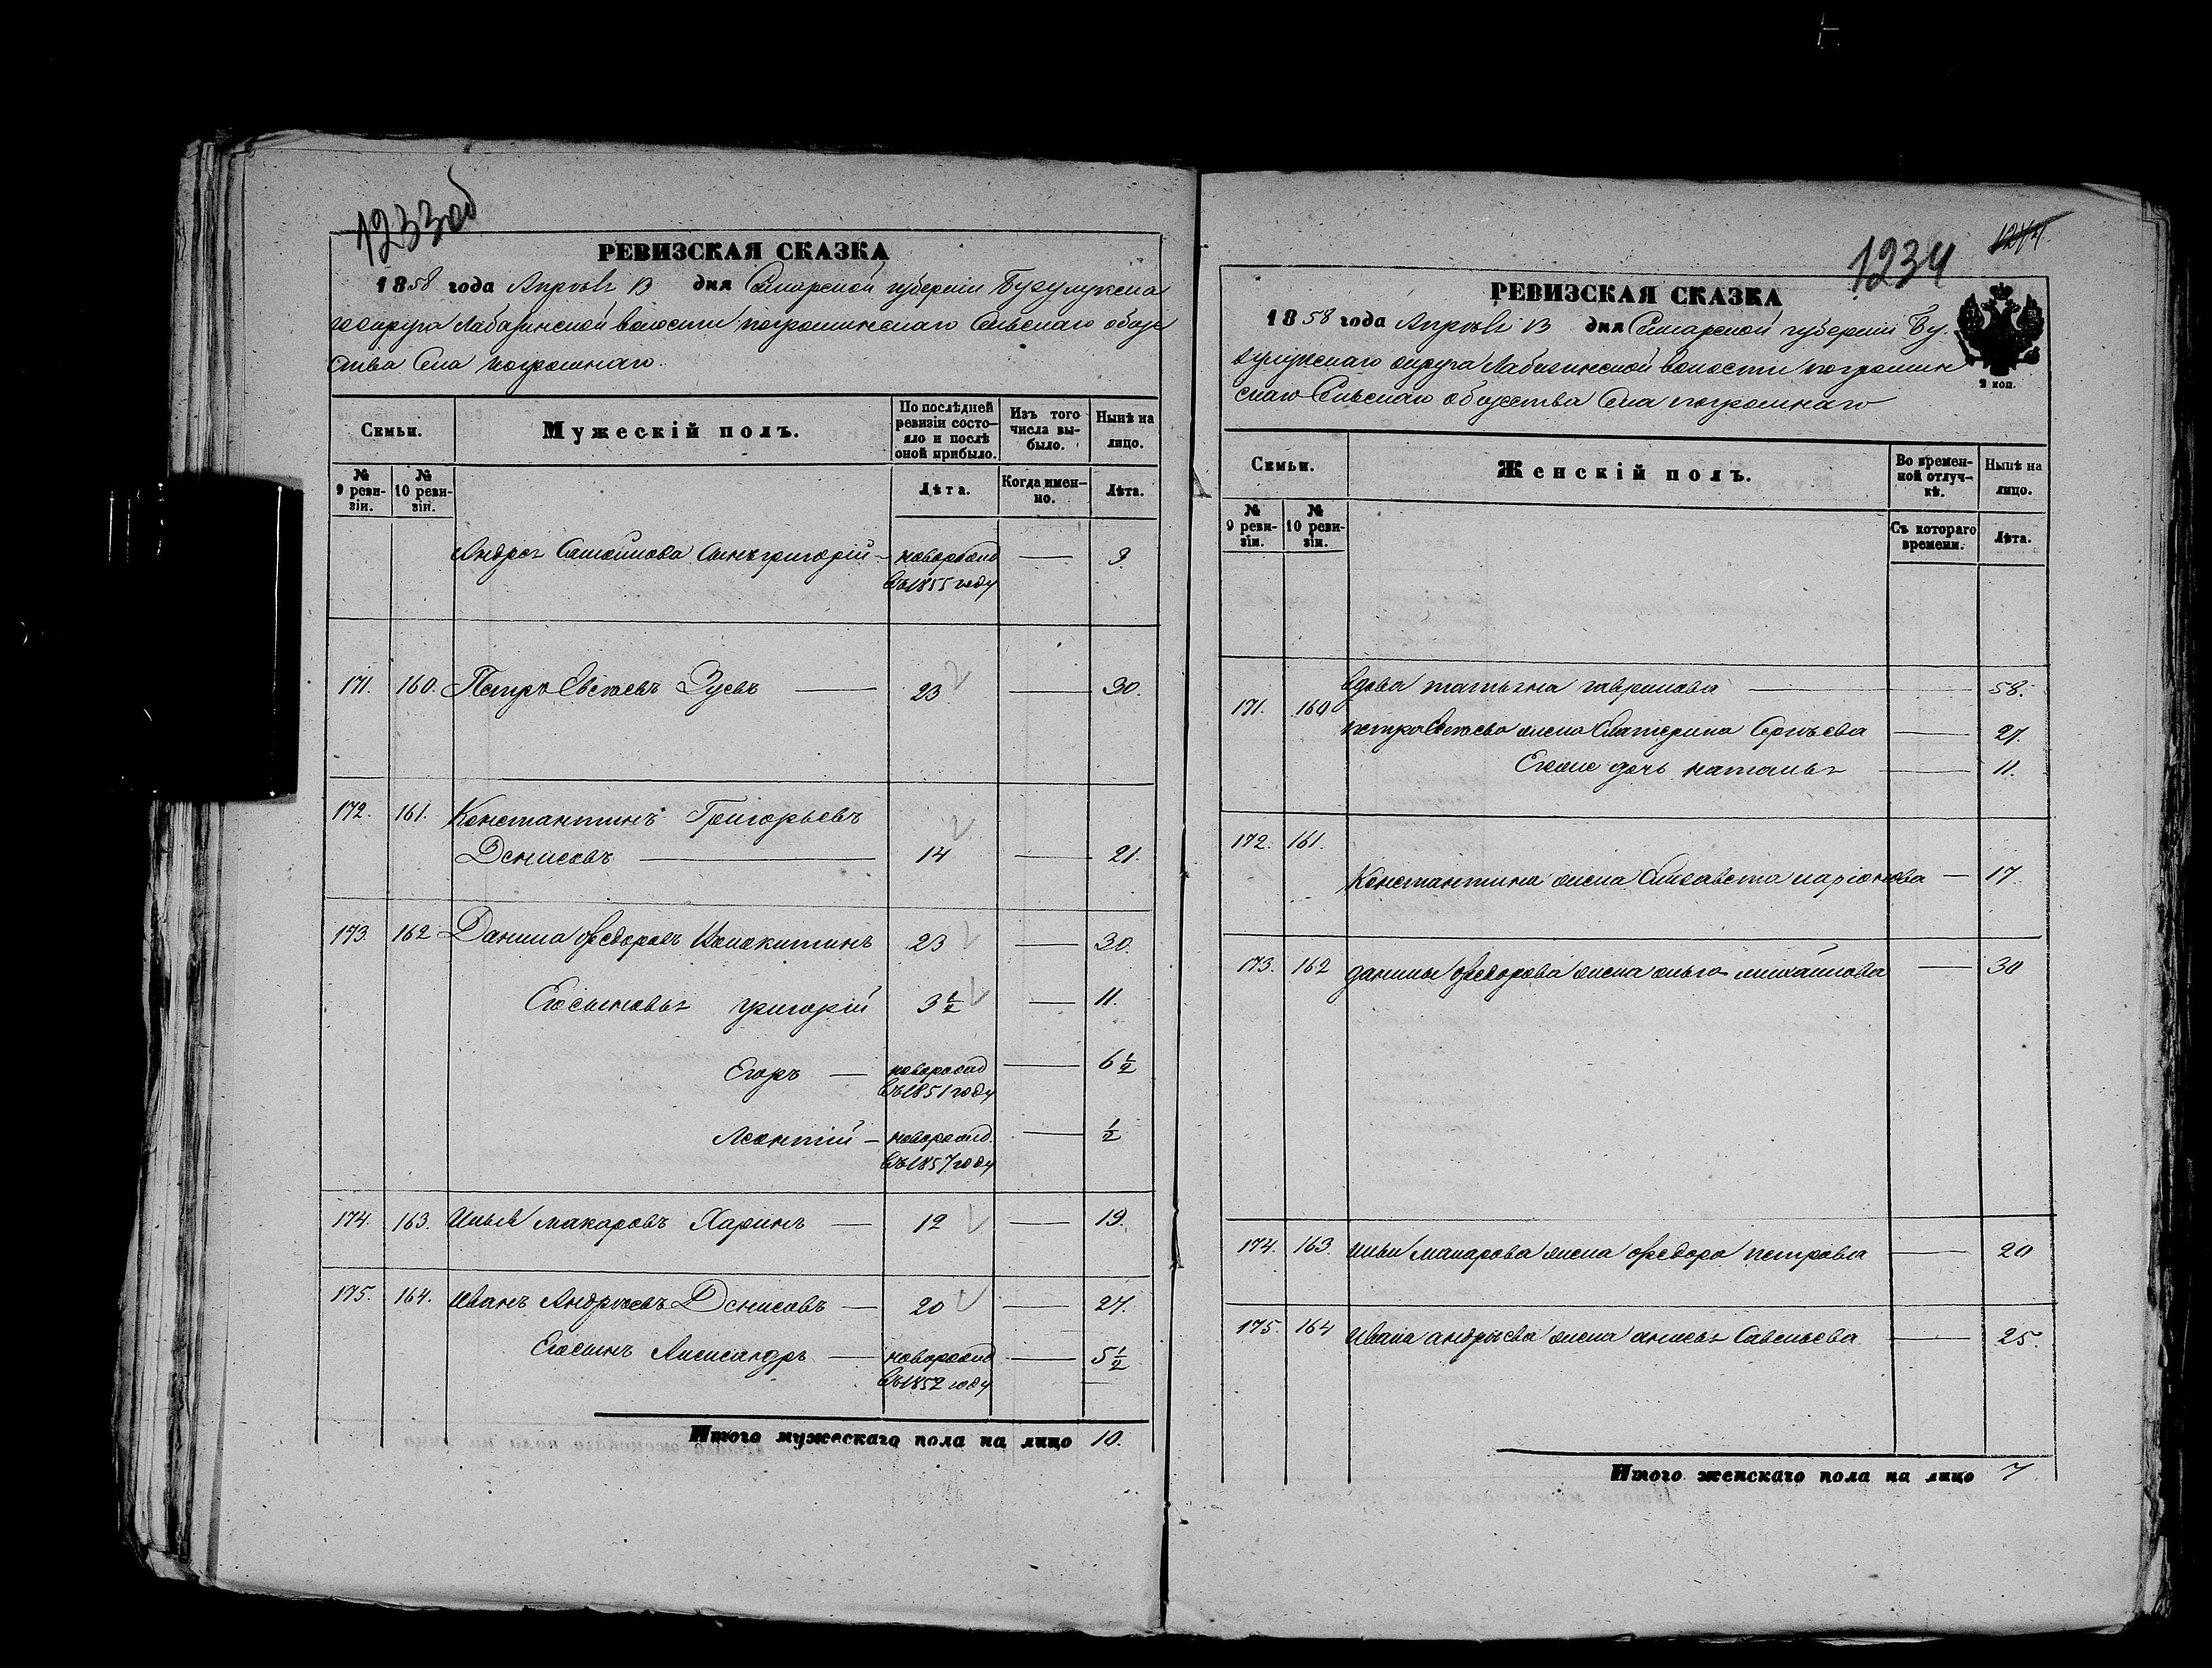 1233об
РЕВИЗСКАЯ СКАЗКА
1858 года Апрѣля 13 дня Самарской губерніи Бузулукска
го округа Лабазинской волости погроминскаго Сельскаго обще
ства Села погромнаго.
Семьи. Мужескій полъ. По послѣдней ревизіи состояло и послѣ оной прибыло. Изъ того числа выбыло. Нынѣ на лицо.
№ 9 ревизіи. № 10 ревизіи. Лѣта. Когда именно. Лѣта.
Андрея Самойлова Сынъ григорій — новорожд — 3
въ 1855 году
171. 160. Петръ Евсѣевъ Зуевъ — 23 — 30.
172. 161. Константинъ Григорьевъ
Денисовъ — 14 — 21.
173. 162 Данила Федоровъ 23 — 30.
Его сыновья григорій 3½ — 11.
Егоръ — новорожд — 6½
въ 1851 году
Леонтій — новорожд. — ½
въ 1857 году
174. 163. Илья макаровъ Харинъ — 12 — 19.
175. 164. Иванъ Андрѣевъ Денисовъ — 20 — 27.
Его сынъ Александръ — новорожд — 5½
въ 1852 году
Итого мужескаго пола на лицо 10.
1234 1244
РЕВИЗСКАЯ СКАЗКА
1858 года Апрѣля 13 дня Самарской губерніи Бу-
зулукскаго округа Лабазинской волости погромин
скаго Сельскаго общества Села погромнаго
2 коп.
Семьи. Женскій полъ. Во временной отлучкѣ. Нынѣ на лицо.
№ 9 ревизіи. № 10 ревизіи. Съ котораго времени. Лѣта.
вдова татьяна гаврилова — 58.
171. 160 петра Евсѣева жена Екатерина Сергѣева — 27.
Его же дочь наталья — 11.
172. 161.
Константина жена Елизавета ларіонова — 17.
173. 162 данилы Федорова жена ольга михайлова — 30
174. 163. ильи макарова жена Федора петрова — 20
175. 164 Ивана андрѣева жена анисья Савельева — 25.
Итого женскаго пола на лицо 7.